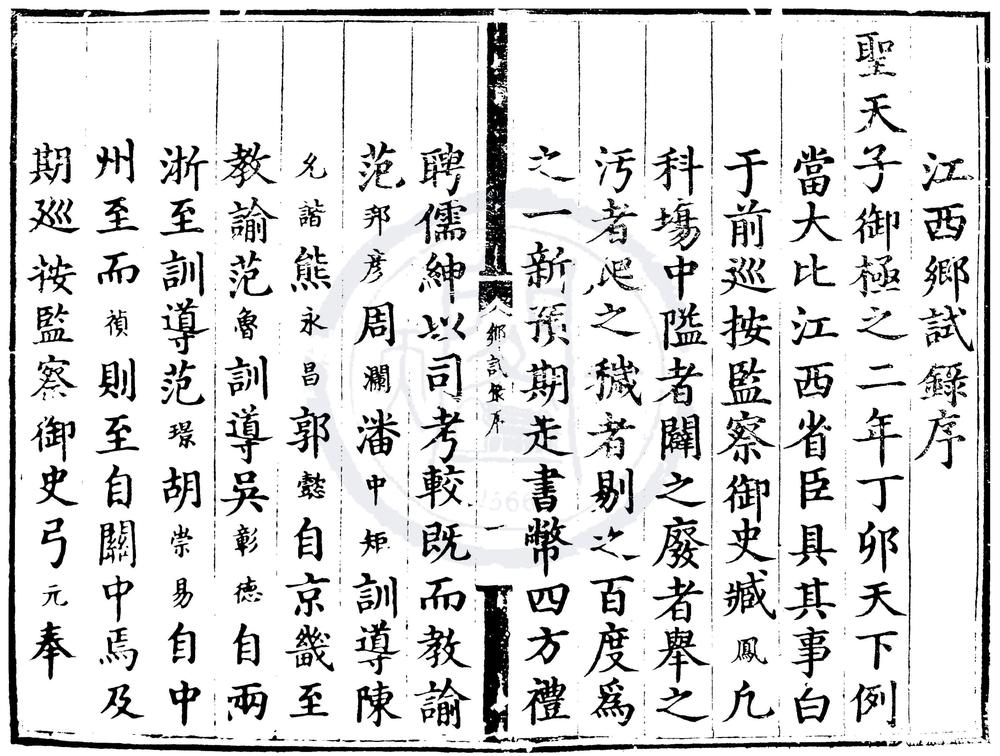 江西鄉試錄序
聖天子御極之二年丁卯天下例
當大比江西省臣具其事白
于前巡按監察御史臧鳳凢
科塲中隘者闢之廢者舉之
汚者𤓰之穢者剔之百度爲
之一新預期走書幣四方禮
鄉試錄序 一
聘儒紳以司考較既而教諭
范邦彥周瀾潘中矩訓導陳
允諧熊永昌郭懿自京畿至
教諭范魯訓導吳彰德自兩
浙至訓導范璟胡崇易自中
州至而禎則至自關中焉及
期巡按監察御史弓元奉